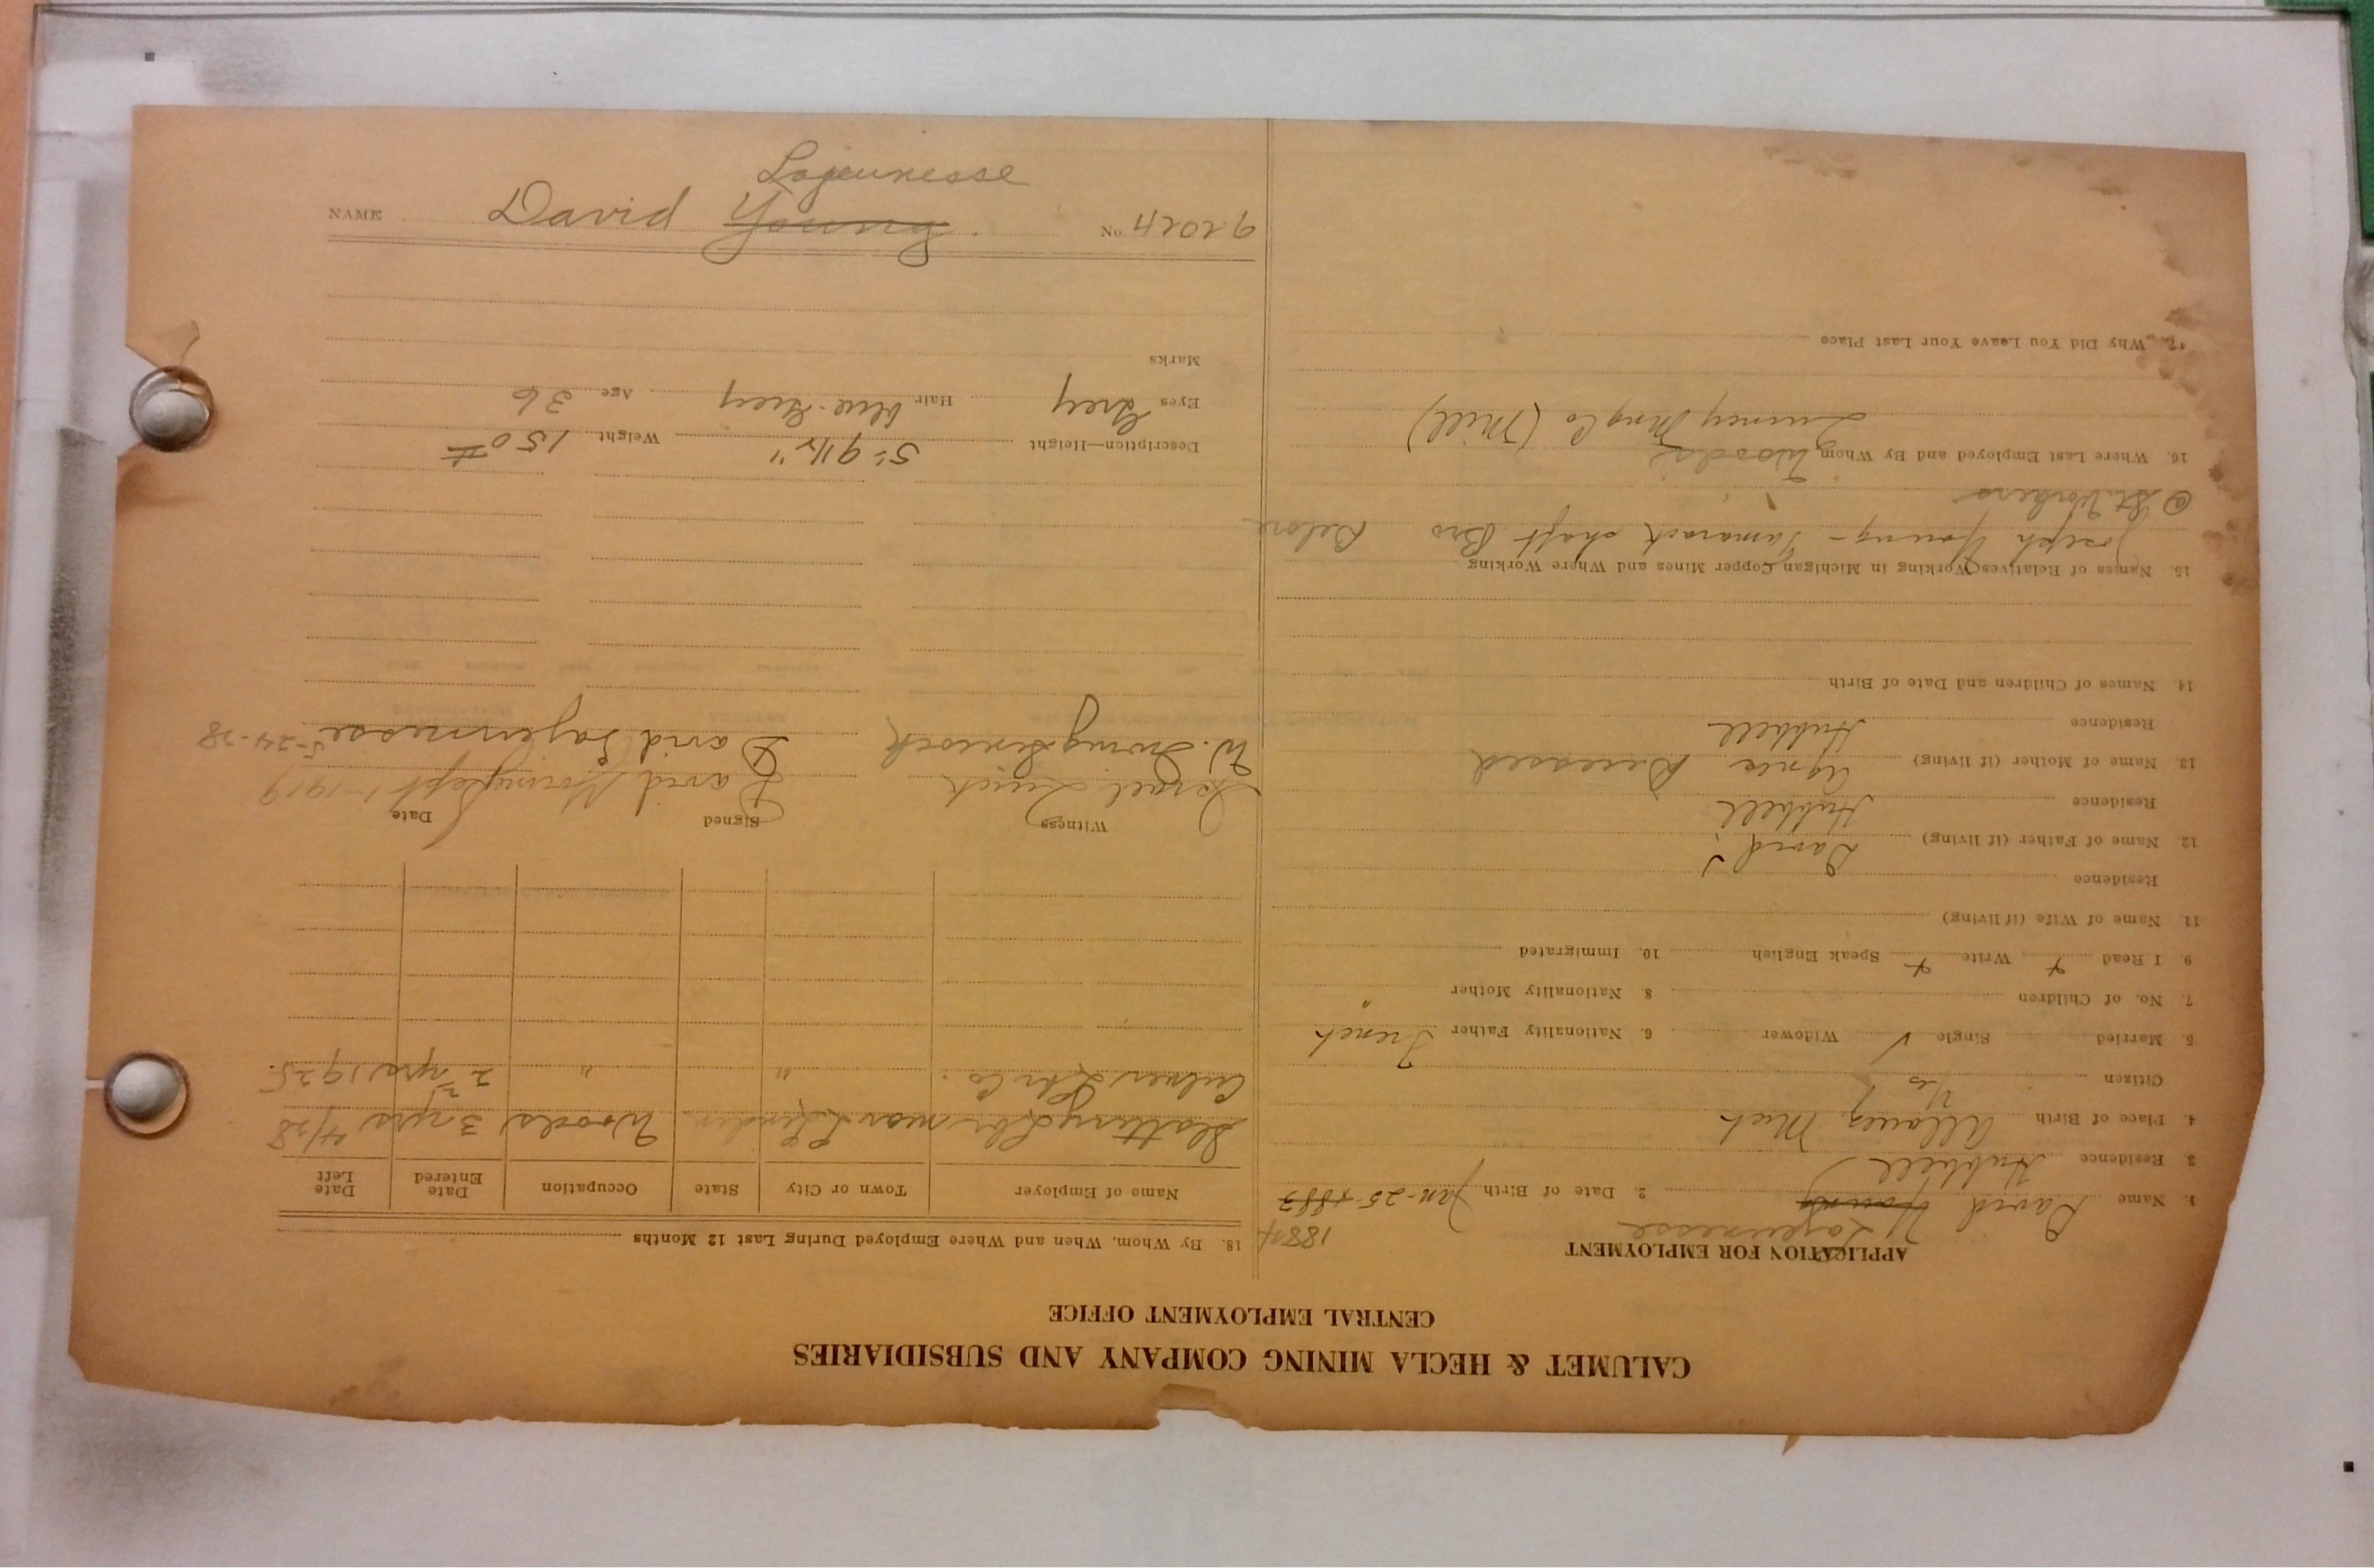 CALUMET & HECLA MINING COMPANY AND SUBSIDIARIES
CENTRAL EMPLOYMENT OFFICE
APPLICATION FOR EMPLOYMENT
Lajeunesse 1884
1. Name David Young 2. Date of Birth Jan-25-1883
3. Residence Hubbell
4. Place of Birth Allouez, Mich
Citizen Yes
5. Married Single ✓ Widower 6. Nationality Father French
7. No. of Children 8 Nationality Mother "
9. I Read Write Speak English 10. Immigrated
11. Name of Wife (if living)
Residence
12. Name of Father (if living) David
Residence Hubbell
13. Name of Mother (if living) Agnes Deceased
Residence Hubbell
14. Names of Children and Date of Birth
15. Names of Relatives Working in Michigan Copper Mines and Where Working
Joseph Young - Tamarack shaft Bro
16. Where Last Employed and By Whom Woods
Quincy Mng Co (Mill)
17. Why Did You Leave Your Last Place
18. By Whom, When and Where Employed During Last 12 Months
Name of Employer Town or City State Occupation Date Entered Date Left
Slattery Lbr Woods 3 yrs 4/28
Lbr Co. " " 2 yrs 1925
Witness Signed Date
Israel David Young Sept 1-1919
W. Irving David Lajeunesse 5-24-28
Description—Height 5'-9 1/2" Weight 150 #
Eyes Grey Hair blue-Grey Age 36
Marks
Lajeunesse
NAME David Young. No. 92024